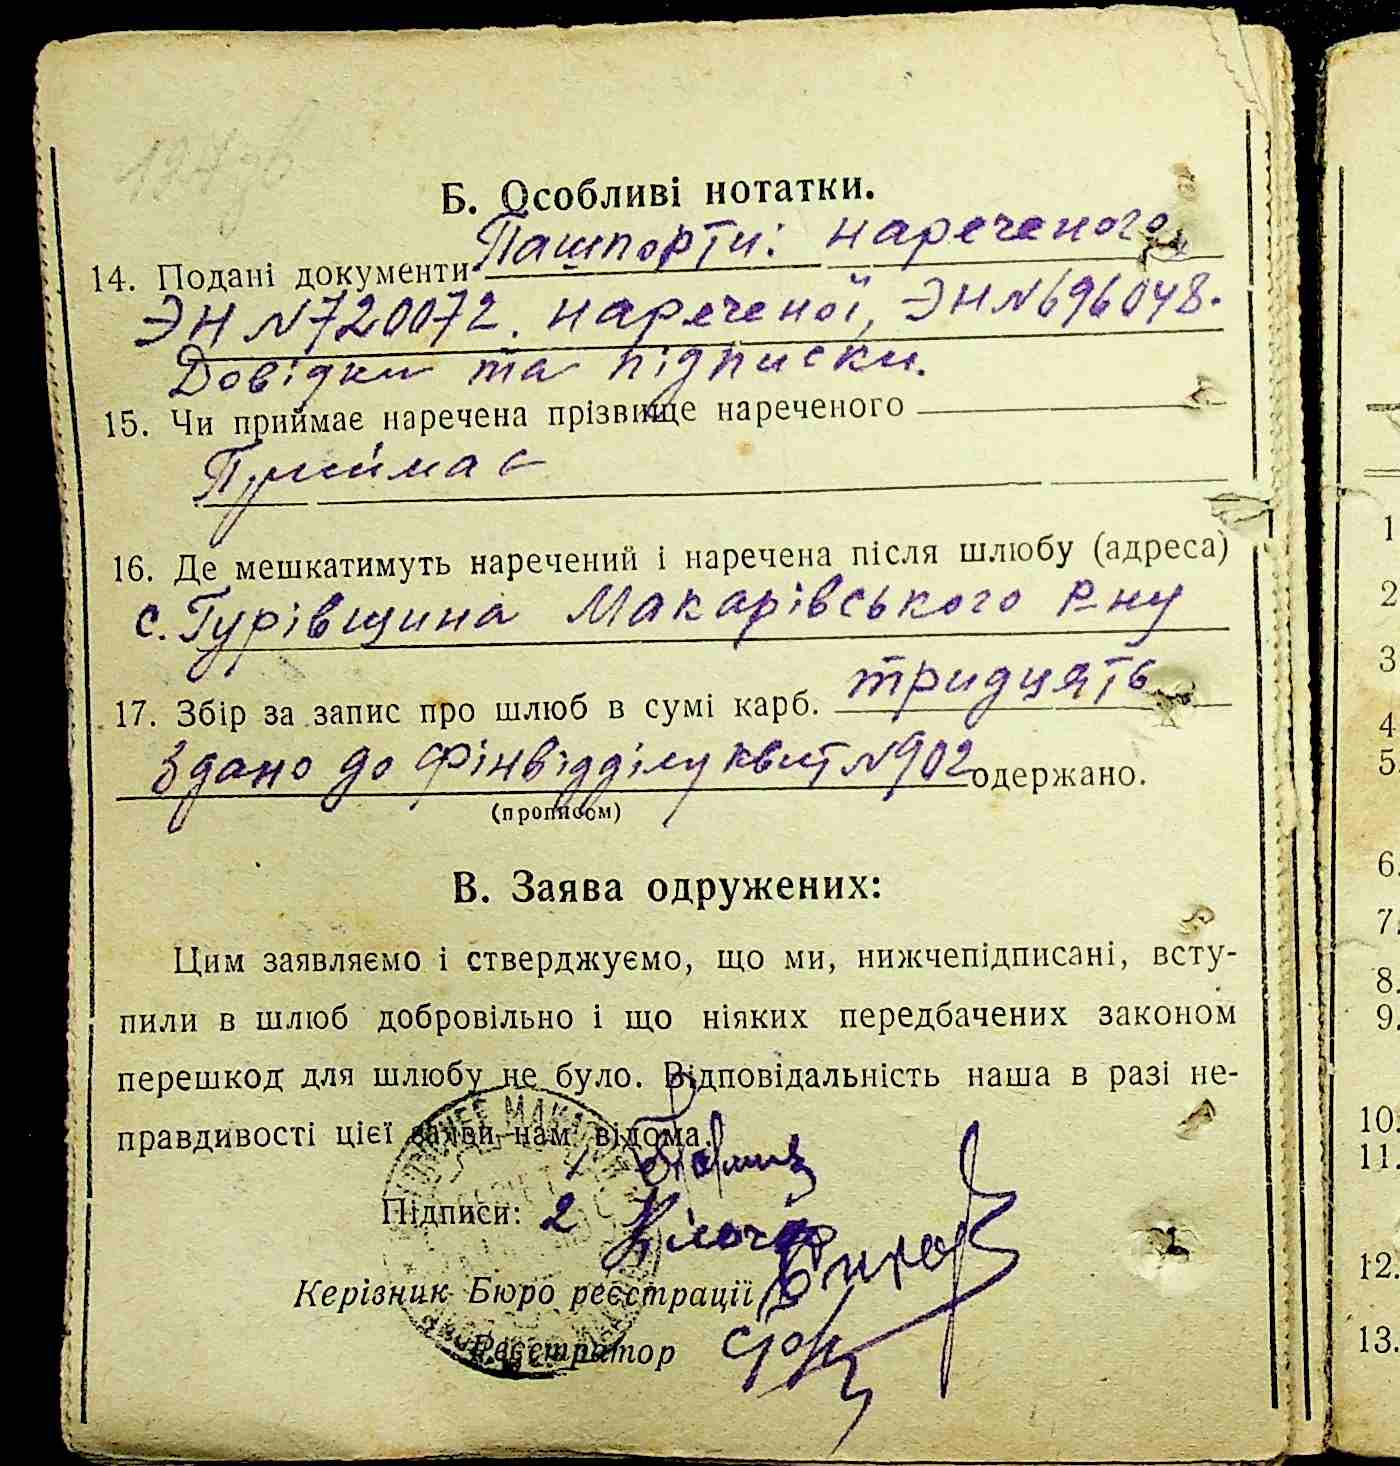 Б. Особливі нотатки.
14. Подані документи Пашпорти: нареченого
ЭН №720072. нареченої, ЭН №696048.
Довідки та підписки.
15. Чи приймає наречена прізвище нареченого
Приймає
16. Де мешкатимуть наречений і наречена після шлюбу (адреса)
с. Гурівщина Макарівського р-ну
17. Збір за запис про шлюб в сумі карб. тридцять
здано до Фінвідділу квит №902 одержано.
(прописом)
В. Заява одружених:
Цим заявляємо і стверджуємо, що ми, нижчепідписані, всту-
пили в шлюб добровільно і що ніяких передбачених законом
перешкод для шлюбу не було. Відповідальність наша в разі не-
правдивості цієї заяви нам відома.
1
Підписи: 2
Керізник Бюро реєстрації
Реєстратор
1
2
3
4
5.
6.
7.
8.
9.
10.
11.
12.
13.